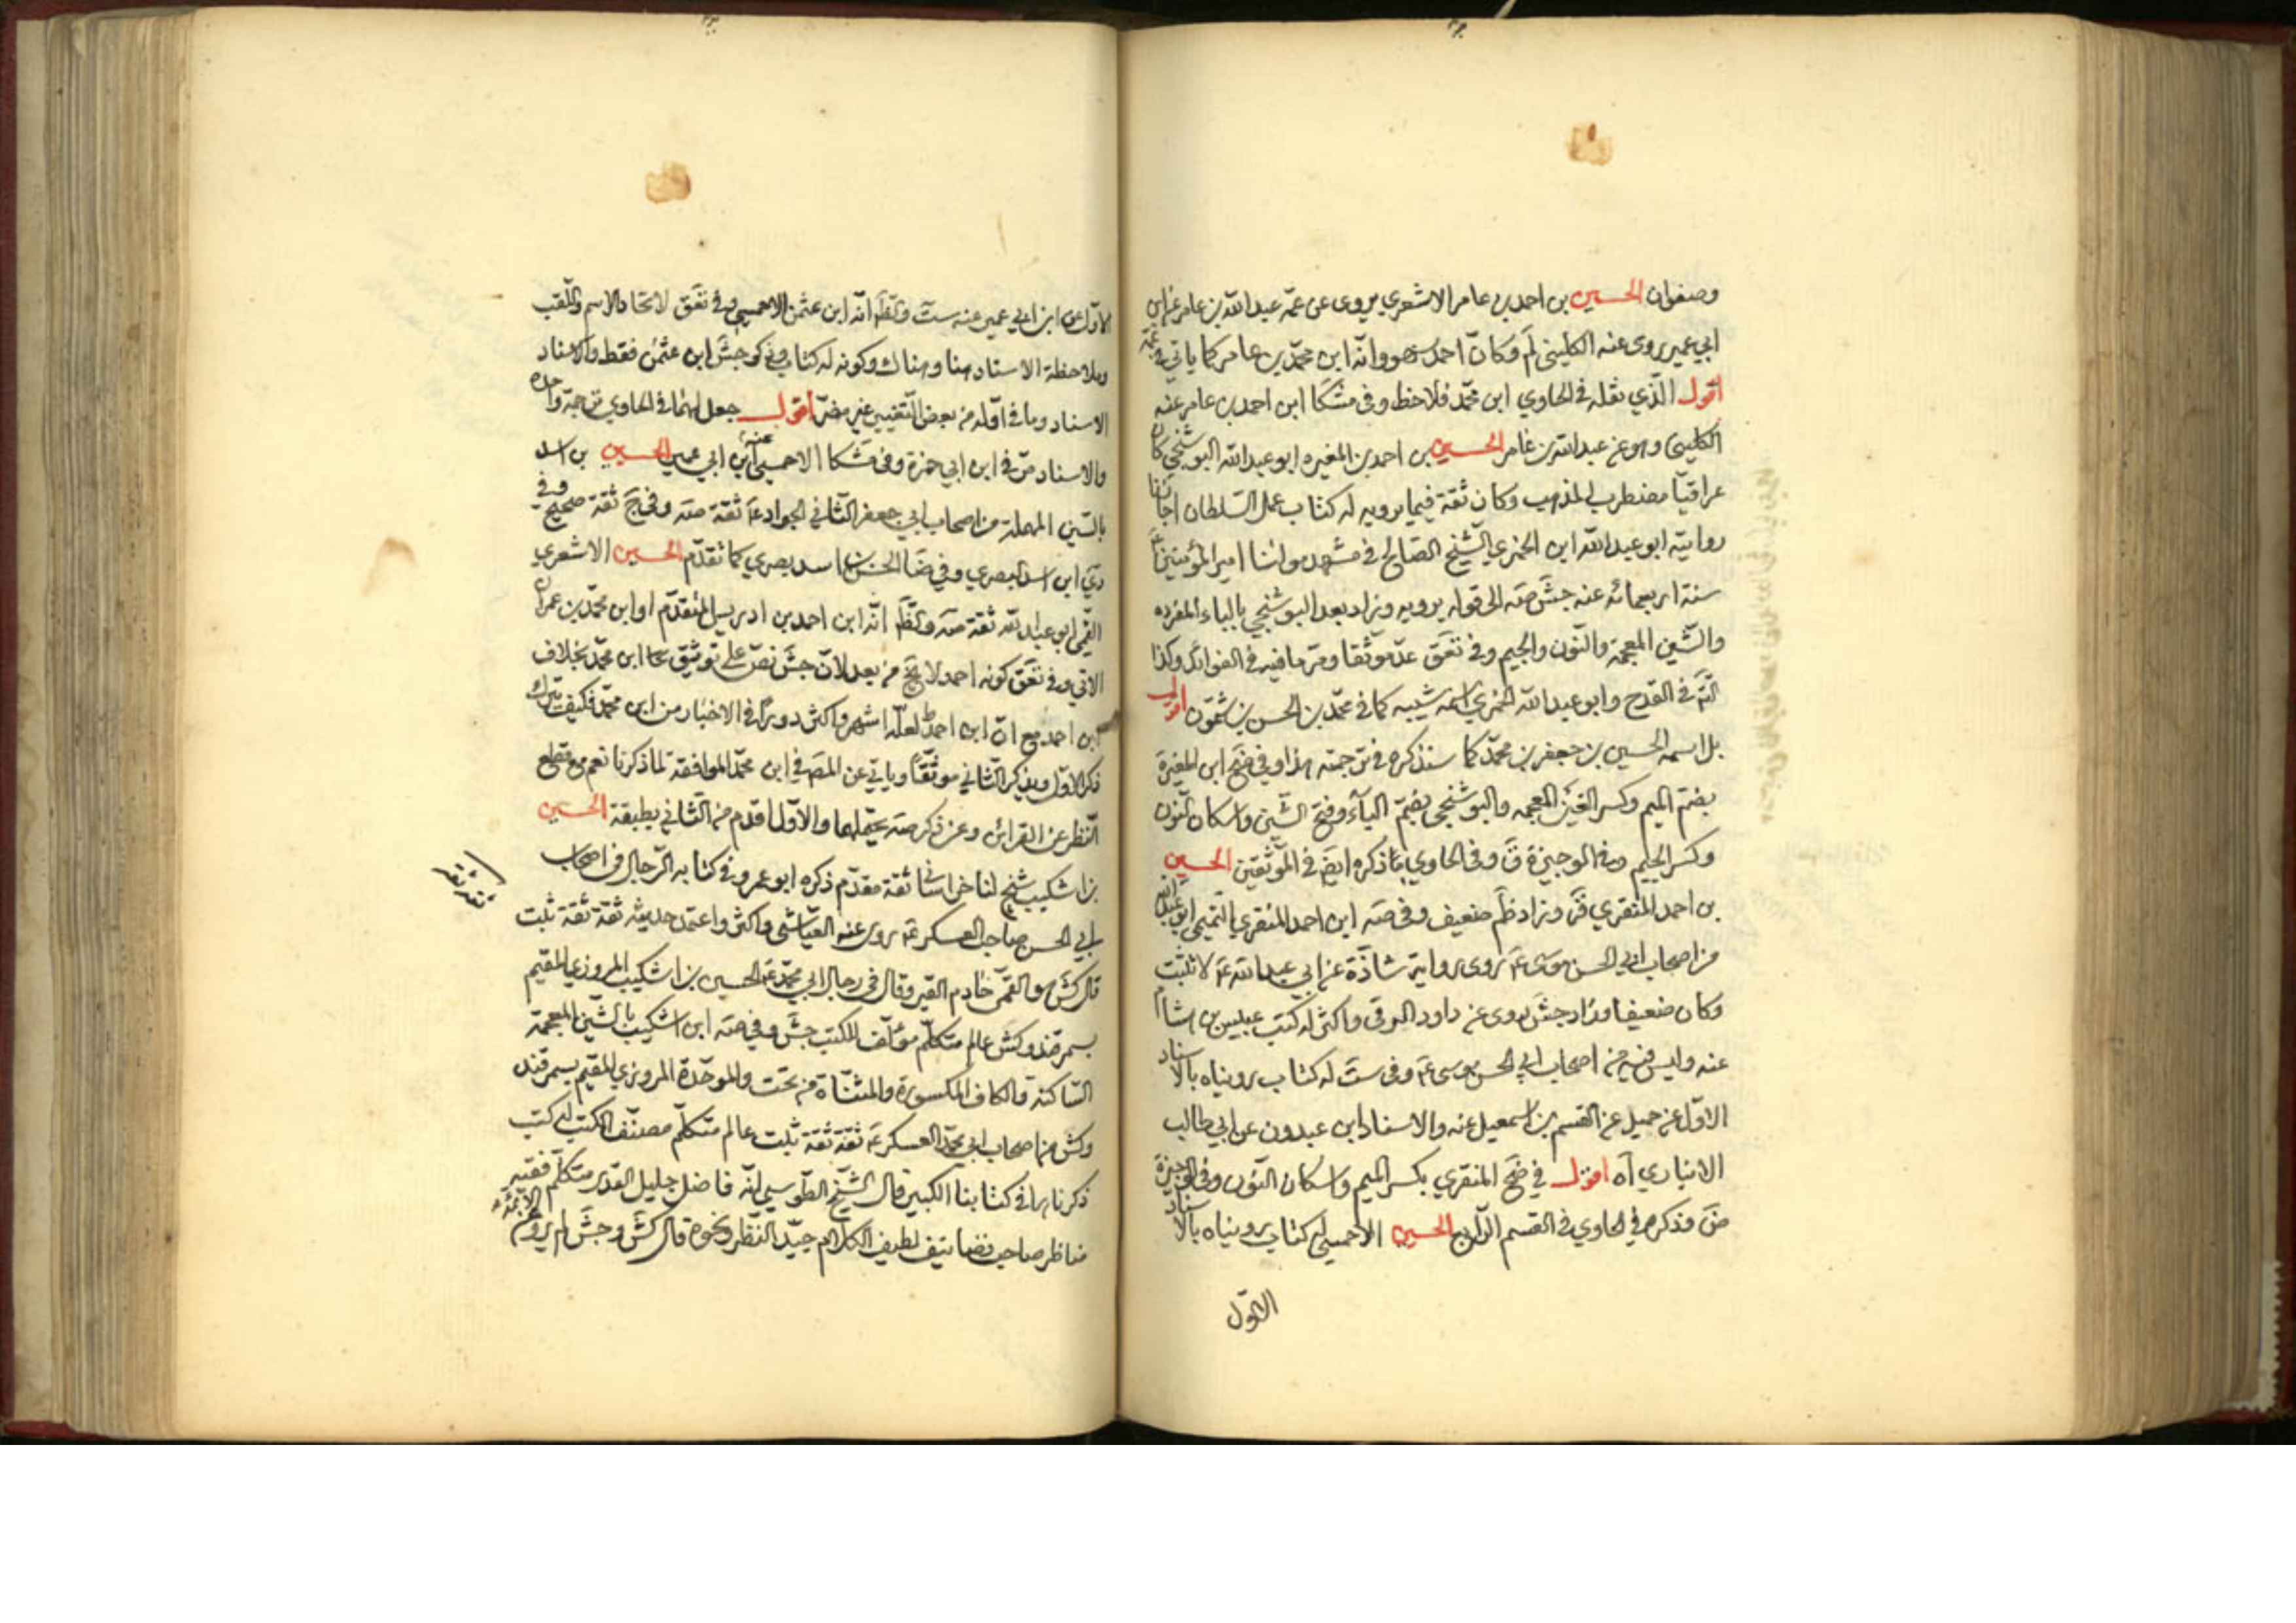 وصفوان الحسين بن احمد بن عامر الاشعري يروى عن عمّه عبد الله بن عامر عن ابن
ابي عمير روى عنه الكليني لم وكانّ احمد سهو وانّه ابن محمّد بن عامر كما ياتي
اقول الّذي نقله في الحاوي ابن محمّد فلاحظ وفي مشكا ابن احمد بن عامر عنه
الكليني وهو عن عبد الله بن عامر الحسين بن احمد بن المغيره ابو عبد الله البوشنجي كان
عراقيّا مضطرب المذهب وكان ثقة فيما يرويه له كتاب عمل السّلطان اجازنا
روايته ابو عبد الله ابن الخمري الشّيخ الصّالح في مشهد مولانا امير المؤمنين ع
سنة اربعمائه عنه جش صه الى قوله يرويه وزاد بعد البوشنجي بالباء المفرده
والشّين المعجمة والنّون والجيم وفي تعق عدّ موثّقا ومرّ ما فيه في الفوائد وكذا
في القدح وابو عبد الله الخمري اسمه شيبه كما في محمّد بن الحسن بن شمّون اقول
بل اسمه الحسين بن جعفر بن محمّد كما سنذكره في ترجمته هذا وفي ضح ابن المغيرة
بضم الميم وكسر الغين المعجمه والبوشنجي بضمّ الباء وفتح الشّين واسكان النّون
وكسر الجيم وفي الوجيزة ق وفي الحاوي ذكره ايض في الموثّقين الحسين
بن احمد المنقري قر وزاد ظم ضعيف وفي صه ابن احمد المنقري التّميمي ابو عبد الله
من اصحاب ابي الحسن موسى ع روى رواية شاذّة عن ابي عبد الله ع لا تثبت
وكان ضعيفا وزاد جش روى عن داود الرقي واكثر له كتب عبيس بن هشام
عنه وليس فيه من اصحاب ابي الحسن موسى ع وفي ست له كتاب رويناه بالاسناد
الاوّل عن حميل عن القسم بن اسمعيل عنه والاسناد ابن عبدون عن ابي طالب
الانباري اه اقول في ضح المنقري بكسر الميم واسكان النّون وفي الوجيزة
ض وذكره في الحاوي في القسم الرّابع الحسين الاحمسي له كتاب رويناه بالاسناد
الاوّل
الاوّل عن ابن ابي عمير عنه ست والظّ انّه ابن عثمن الاحمسي وفي تعق لاتحاد الاسم واللّقب
وملاحظة الاسناد هنا وهناك وكونه له كتاب وذكر جش ابن عثمن فقط والاسناد
الاسناد وما في اوّله من بعض التّغيير غير مضرّ اقول جعل لهما في الحاوي ترجمة واحدة
والاسناد مرّ في ابن ابي حمزة وفي مشكا الاحمسي عنه ابن ابي عمير الحسين بن اسد
بالسّين المهملة من اصحاب ابي جعفر الثّاني الجواد ع ثقة صه وفي ج ثقة صحيح وفي
دي ابن اسد البصري وفي ضا الحسن بن اسد بصري كما تقدّم الحسين الاشعري
القمي ابو عبد الله ثقة صه والظّ انّه ابن احمد بن ادريس المتقدّم او ابن محمّد بن عمران
الاتي وفي تعق كونه احمد لا يخ من بعد لانّ جش نصّ على توثيق ابن محمّد بخلاف
ابن احمد مع انّ ابن احمد لعلّه اشهر واكثر دورانا في الاخبار من ابن محمّد فكيف يترك
ذكر الاوّل ويذكر الثّاني موثّقا وياتي عن المص في ابن محمّد الموافقة لما ذكرنا نعم مع قطع
النّظر عن القرائن وعن ذكر صه يحتملهما والاوّل اقدم من الثّاني بطبقة الحسين
بن اشكيب شيخ لنا خراساني ثقة مقدّم ذكره ابو عمرو في كتابه الرّجال في اصحاب
ابي الحسن صاحب العسكر ع روى عنه العيّاشي واكثر واعتمد حديثه ثقة ثقة ثبت
قال كش هو القمّي خادم القبر وقال في رجال ابي محمّد ع الحسين بن اشكيب المروزي المقيم
بسمرقند وكش عالم متكلّم مؤلّف للكتب جش وفي صه ابن اشكيب بالشّين المعجمة
السّاكنة والكاف المكسورة والمثنّاة من تحت والموحّدة المروزي المقيم بسمرقند
وكش من اصحاب ابي محمّد العسكري ع ثقة ثقة ثبت عالم متكلّم مصنّف الكتب له كتب
ذكرناها في كتابنا الكبير قال الشّيخ الطّوسي انّه فاضل جليل القدر متكلّم فقيه
مناظر صاحب تصانيف لطيف الكلام جيّد النّظر ونحوه قال كش وجش لم يرو عن الائمّة